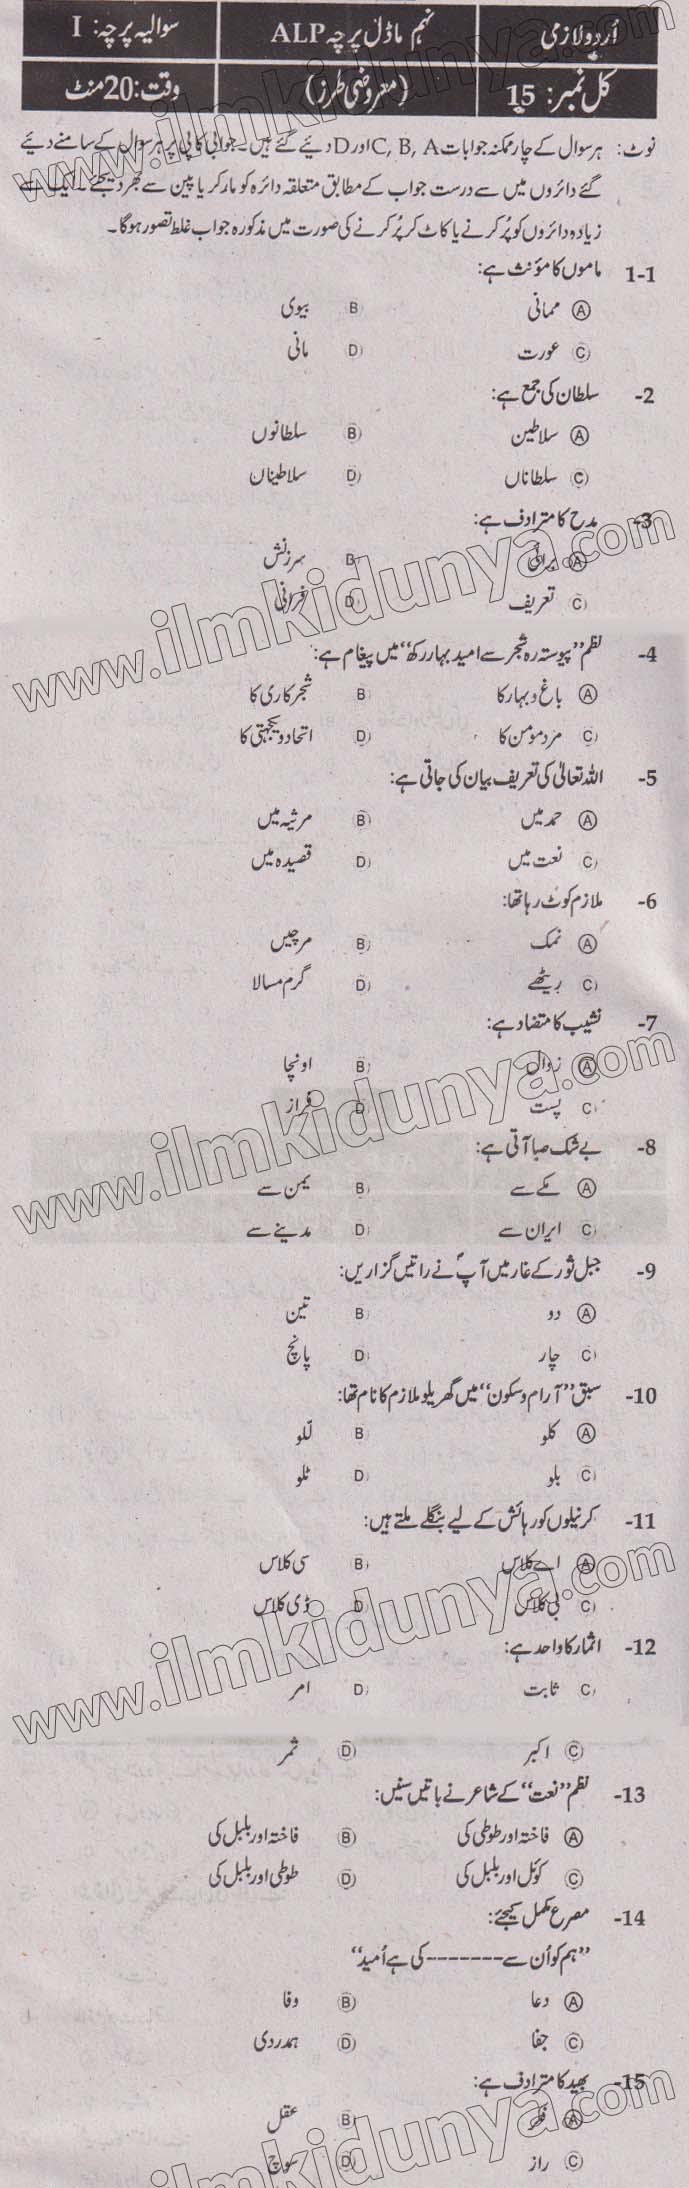 اُردو لازمی نہم ماڈل پرچہ ALP سوالیہ پرچہ: I
کل نمبر: 15 (معروضی طرز) وقت: 20 منٹ
نوٹ: ہر سوال کے چار ممکنہ جوابات C, B, A اور D دیئے گئے ہیں۔ جوابی کاپی پر ہر سوال کے سامنے دیئے
گئے دائروں میں سے درست جواب کے مطابق متعلقہ دائرہ کو مارکر یا پین سے بھر دیجئے۔ ایک سے
زیادہ دائروں کو پُر کرنے یا کاٹ کر پُر کرنے کی صورت میں مذکورہ جواب غلط تصور ہوگا۔
1-1 ماموں کا مؤنث ہے:
A ممانی B بیوی
C عورت D مانی
2- سلطان کی جمع ہے:
A سلاطین B سلطانوں
C سلطاناں D سلاطینان
3- مدح کا مترادف ہے:
A برائی B سرزنش
C تعریف D
4- نظم ’’پیوستہ رہ شجر سے امید بہار رکھ‘‘ میں پیغام ہے:
A باغ و بہار کا B شجر کاری کا
C مرد مومن کا D اتحاد و یکجہتی کا
5- اللہ تعالیٰ کی تعریف بیان کی جاتی ہے:
A حمد میں B مرثیہ میں
C نعت میں D قصیدہ میں
6- ملازم کوٹ رہا تھا:
A نمک B مرچیں
C ریٹھے D گرم مسالا
7- نشیب کا متضاد ہے:
A زوال B اونچا
C پست D فراز
8- بے شک صبا آتی ہے:
A مکے سے B یمن سے
C ایران سے D مدینے سے
9- جبل ثور کے غار میں آپؐ نے راتیں گزاریں:
A دو B تین
C چار D پانچ
10- سبق ’’آرام و سکون‘‘ میں گھریلو ملازم کا نام تھا:
A کلو B للو
C بلو D ٹلو
11- کرنیلوں کو رہائش کے لیے بنگلے ملتے ہیں:
A اے کلاس B سی کلاس
C بی کلاس D ڈی کلاس
12- اثمار کا واحد ہے:
C ثابت D امر
C اکبر D ثمر
13- نظم ’’نعت‘‘ کے شاعر نے باتیں سنیں:
A فاختہ اور طوطی کی B فاختہ اور بلبل کی
C کوئل اور بلبل کی D طوطی اور بلبل کی
14- مصرع مکمل کیجئے:
’’ہم کو اُن سے ------- کی ہے اُمید‘‘
A دعا B وفا
C جفا D ہمدردی
15- بھید کا مترادف ہے:
A B عقل
C راز D سوچ
www.ilmkidunya.com
www.ilmkidunya.com
www.ilmkidunya.com
www.ilmkidunya.com
www.ilmkidunya.com